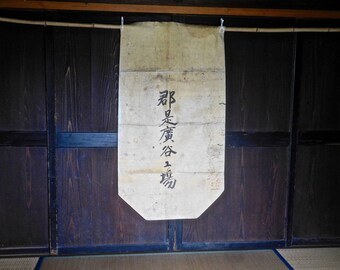 郡是廣谷工場